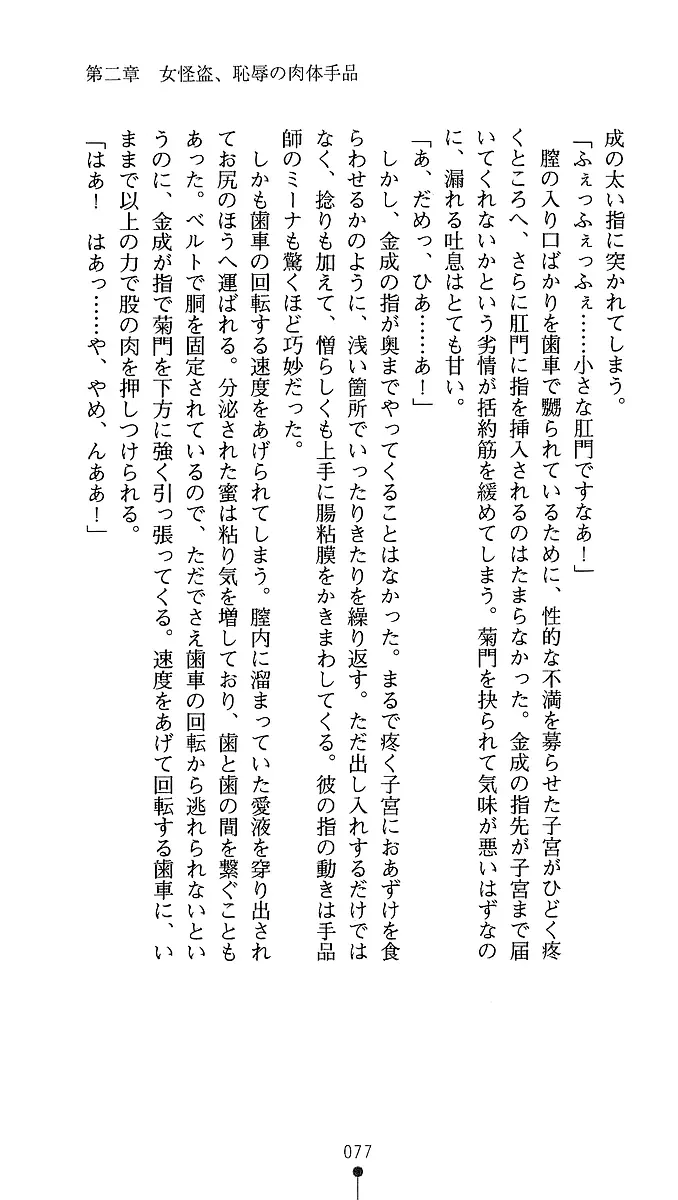 第二章　女怪盗、恥辱の肉体手品
成の太い指に突かれてしまう。
「ふぇっふぇっふぇ……小さな肛門ですなあ！」
　膣の入り口ばかりを歯車で嬲られているために、性的な不満を募らせた子宮がひどく疼
くところへ、さらに肛門に指を挿入されるのはたまらなかった。金成の指先が子宮まで届
いてくれないかという劣情が括約筋を緩めてしまう。菊門を抉られて気味が悪いはずなの
に、漏れる吐息はとても甘い。
「あ、だめっ、ひあ……あ！」
　しかし、金成の指が奥までやってくることはなかった。まるで疼く子宮におあずけを食
らわせるかのように、浅い箇所でいったりきたりを繰り返す。ただ出し入れするだけでは
なく、捻りも加えて、憎らしくも上手に腸粘膜をかきまわしてくる。彼の指の動きは手品
師のミーナも驚くほど巧妙だった。
　しかも歯車の回転する速度をあげられてしまう。膣内に溜まっていた愛液を穿り出され
てお尻のほうへ運ばれる。分泌された蜜は粘り気を増しており、歯と歯の間を繋ぐことも
あった。ベルトで胴を固定されているので、ただでさえ歯車の回転から逃れられないとい
うのに、金成が指で菊門を下方に強く引っ張ってくる。速度をあげて回転する歯車に、い
ままで以上の力で股の肉を押しつけられる。
「はあ！　はあっ……や、やめ、んああ！」
077